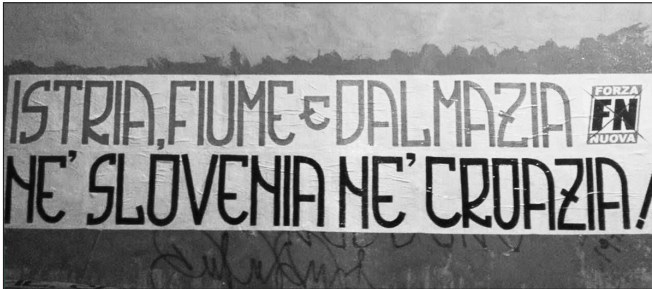 ISTRIA, FIUME e DALMAZIA
FORZA
FN
NUOVA
NE' SLOVENIA NE' CROAZIA!